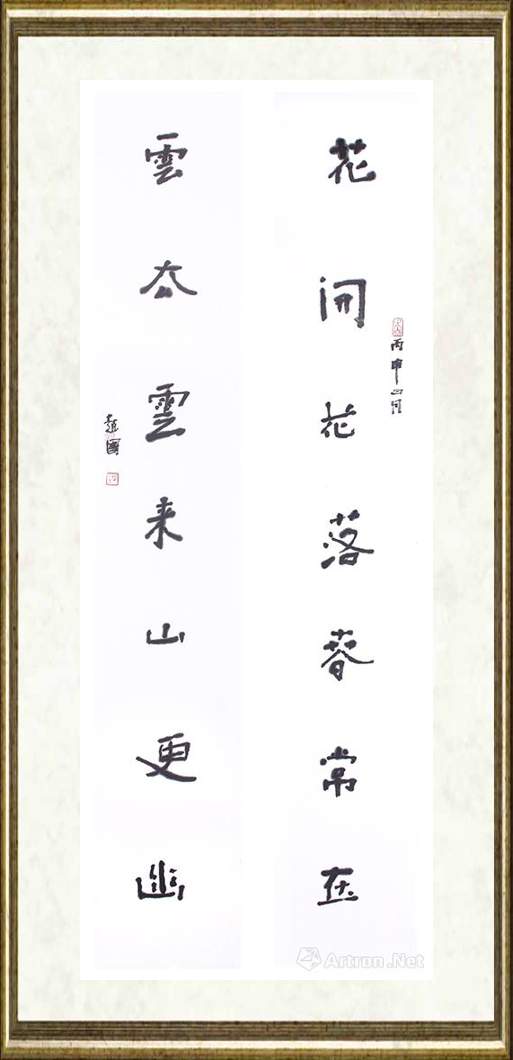 花開花落春常在
丙申山月
雲去雲来山更幽
趙國
Artron.Net